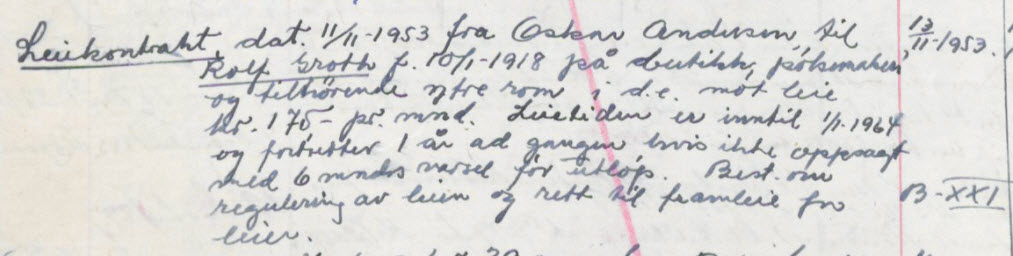 Leiekontrakt, dat. 11/11-1953 fra Oskar Andersen til 13/11-1953.
Rolf Groth f. 10/1-1918 på butikk, pølsemakeri
og tilhörende ytre rom i d.e. mot leie
kr. 175- pr. mnd. Leietiden er inntil 1/1.1964
og fortsetter 1 år ad gangen hvis ikke oppsagt
med 6 mndrs varsel för utlöp. Best. om
regulering av leien og rett til framleie for B-XXI
leier.